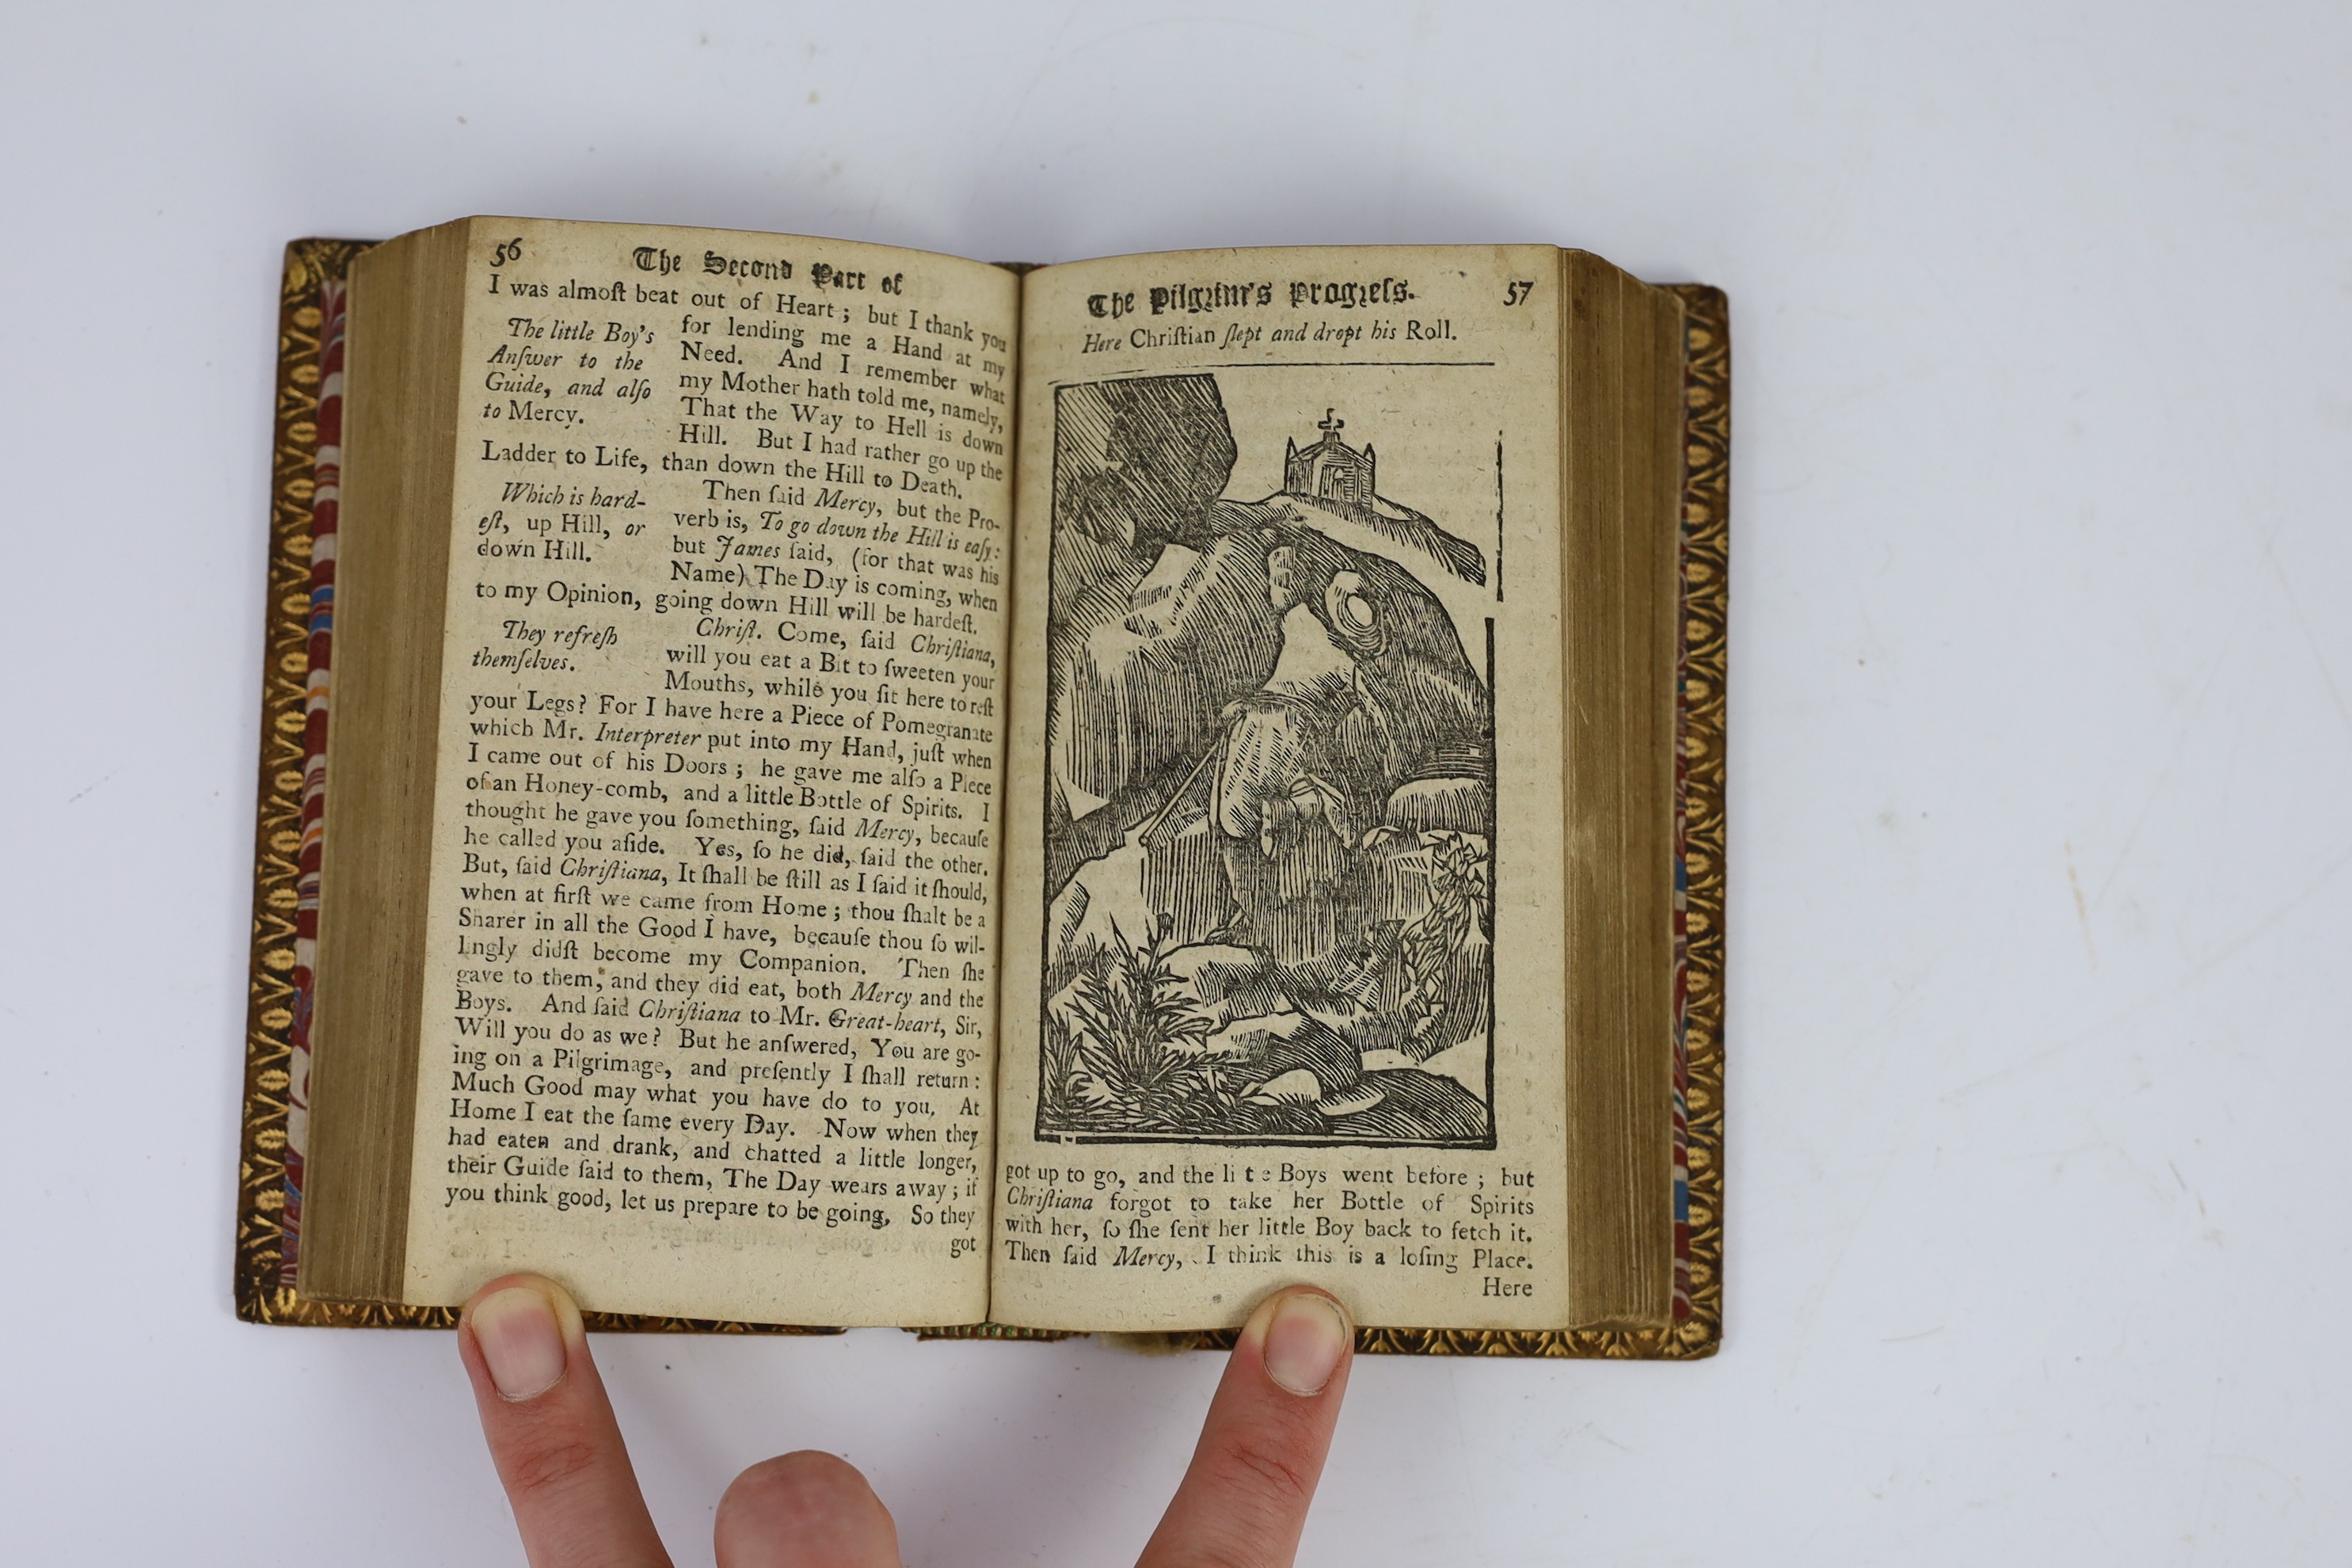 56
The Second Part of
I was almoſt beat out of Heart; but I thank you
The little Boy's
Anſwer to the
Guide, and alſo
to Mercy.
for lending me a Hand at my
Need. And I remember what
my Mother hath told me, namely,
That the Way to Hell is down
Hill. But I had rather go up the
Ladder to Life, than down the Hill to Death.
Which is hard-
eſt, up Hill, or
down Hill.
Then ſaid Mercy, but the Pro-
verb is, To go down the Hill is eaſy:
but James ſaid, (for that was his
Name) The Day is coming, when
to my Opinion, going down Hill will be hardeſt.
They refreſh
themſelves.
Chriſt. Come, ſaid Chriſtiana,
will you eat a Bit to ſweeten your
Mouths, while you ſit here to reſt
your Legs? For I have here a Piece of Pomegranate
which Mr. Interpreter put into my Hand, juſt when
I came out of his Doors; he gave me alſo a Piece
of an Honey-comb, and a little Bottle of Spirits. I
thought he gave you ſomething, ſaid Mercy, becauſe
he called you aſide. Yes, ſo he did, ſaid the other.
But, ſaid Chriſtiana, It ſhall be ſtill as I ſaid it ſhould,
when at firſt we came from Home; thou ſhalt be a
Sharer in all the Good I have, becauſe thou ſo wil-
lingly didſt become my Companion. Then ſhe
gave to them, and they did eat, both Mercy and the
Boys. And ſaid Chriſtiana to Mr. Great-heart, Sir,
Will you do as we? But he anſwered, You are go-
ing on a Pilgrimage, and preſently I ſhall return:
Much Good may what you have do to you. At
Home I eat the ſame every Day. Now when they
had eaten and drank, and chatted a little longer,
their Guide ſaid to them, The Day wears away; if
you think good, let us prepare to be going. So they
got
The Pilgrim's Progreſs.
57
Here Chriſtian ſlept and dropt his Roll.
got up to go, and the li t e Boys went before; but
Chriſtiana forgot to take her Bottle of Spirits
with her, ſo ſhe ſent her little Boy back to fetch it.
Then ſaid Mercy, I think this is a loſing Place.
Here